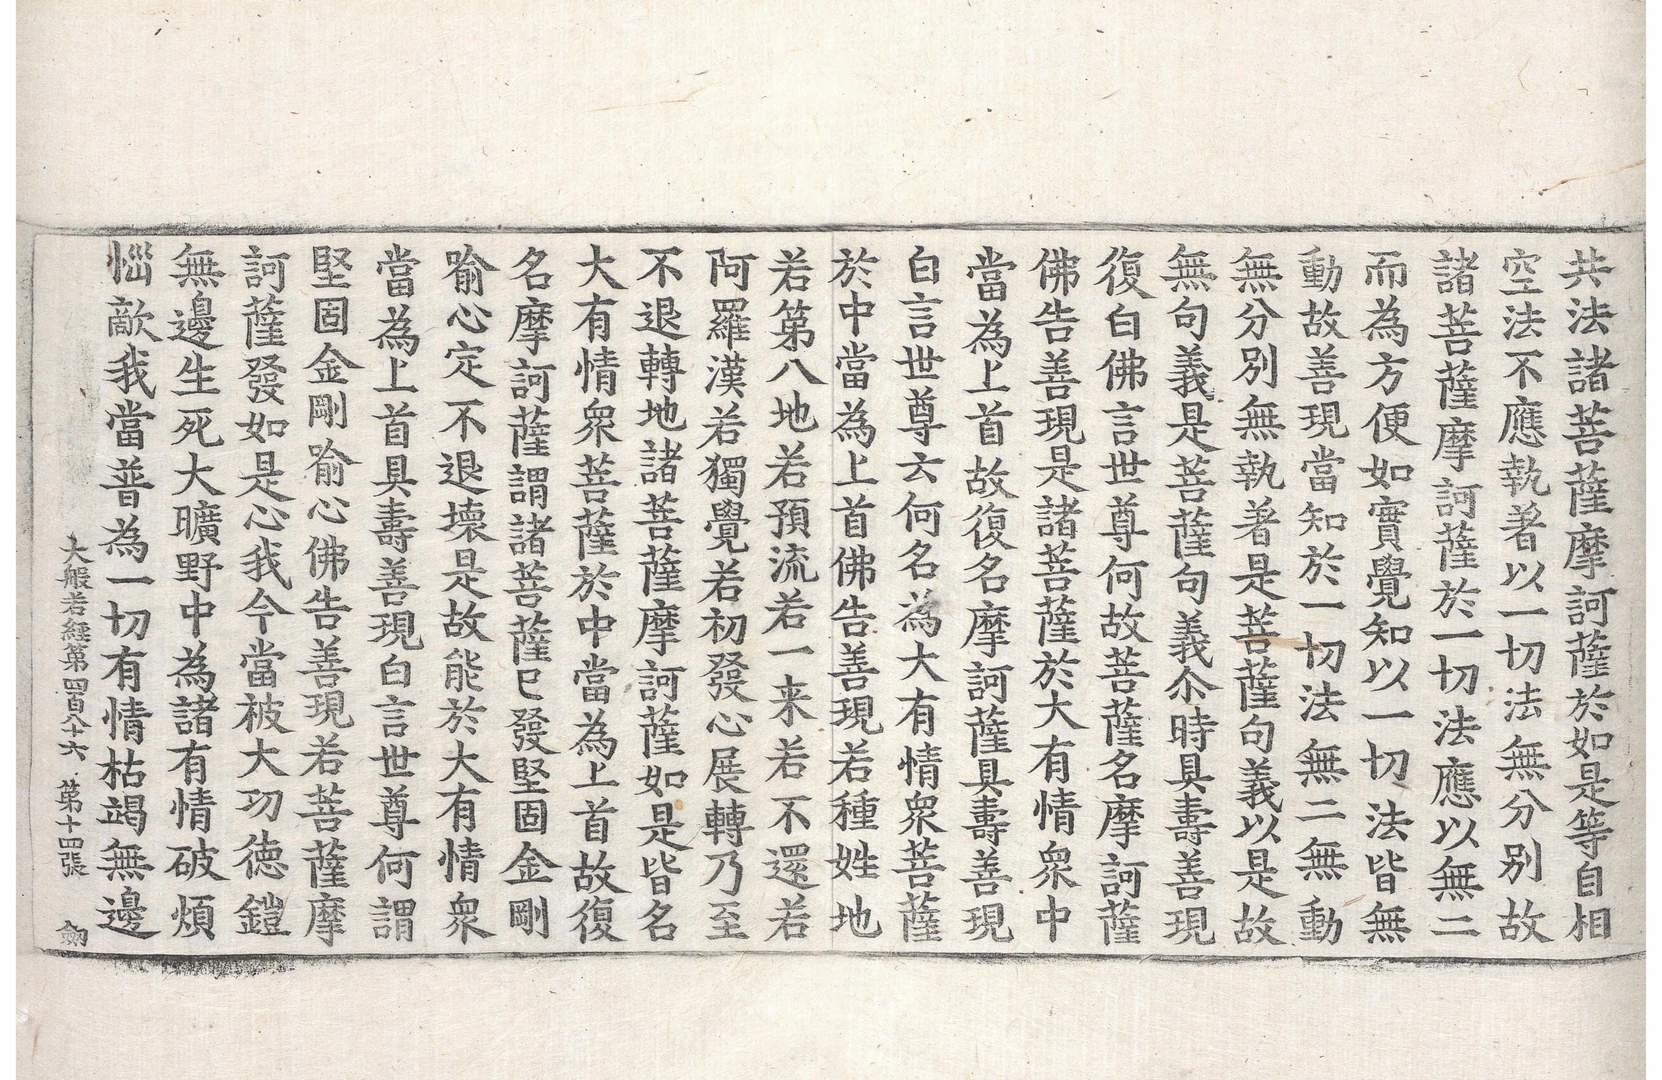 共法諸菩薩摩訶薩於如是等自相
空法不應執著以一切法無分别故
諸菩薩摩訶薩於一切法應以無二
而為方便如實覺知以一切法皆無
動故善現當知於一切法無二無動
無分別無執著是菩薩句義以是故
無句義是菩薩句義尒時具壽善現
復白佛言世尊何故菩薩名摩訶薩
佛告善現是諸菩薩於大有情衆中
當為上首故復名摩訶薩具壽善現
白言世尊云何名為大有情衆菩薩
於中當為上首佛告善現若種姓地
若第八地若預流若一来若不還若
阿羅漢若獨覺若初發心展轉乃至
不退轉地諸菩薩摩訶薩如是皆名
大有情衆菩薩於中當為上首故復
名摩訶薩謂諸菩薩已發堅固金剛
喻心定不退壞是故能於大有情衆
當為上首具壽善現白言世尊何謂
堅固金剛喻心佛告善現若菩薩摩
訶薩發如是心我今當被大功德鎧
無邊生死大曠野中為諸有情破煩
惱敵我當普為一切有情枯竭無邊
大般若經第四百八十六 第十四張 劒